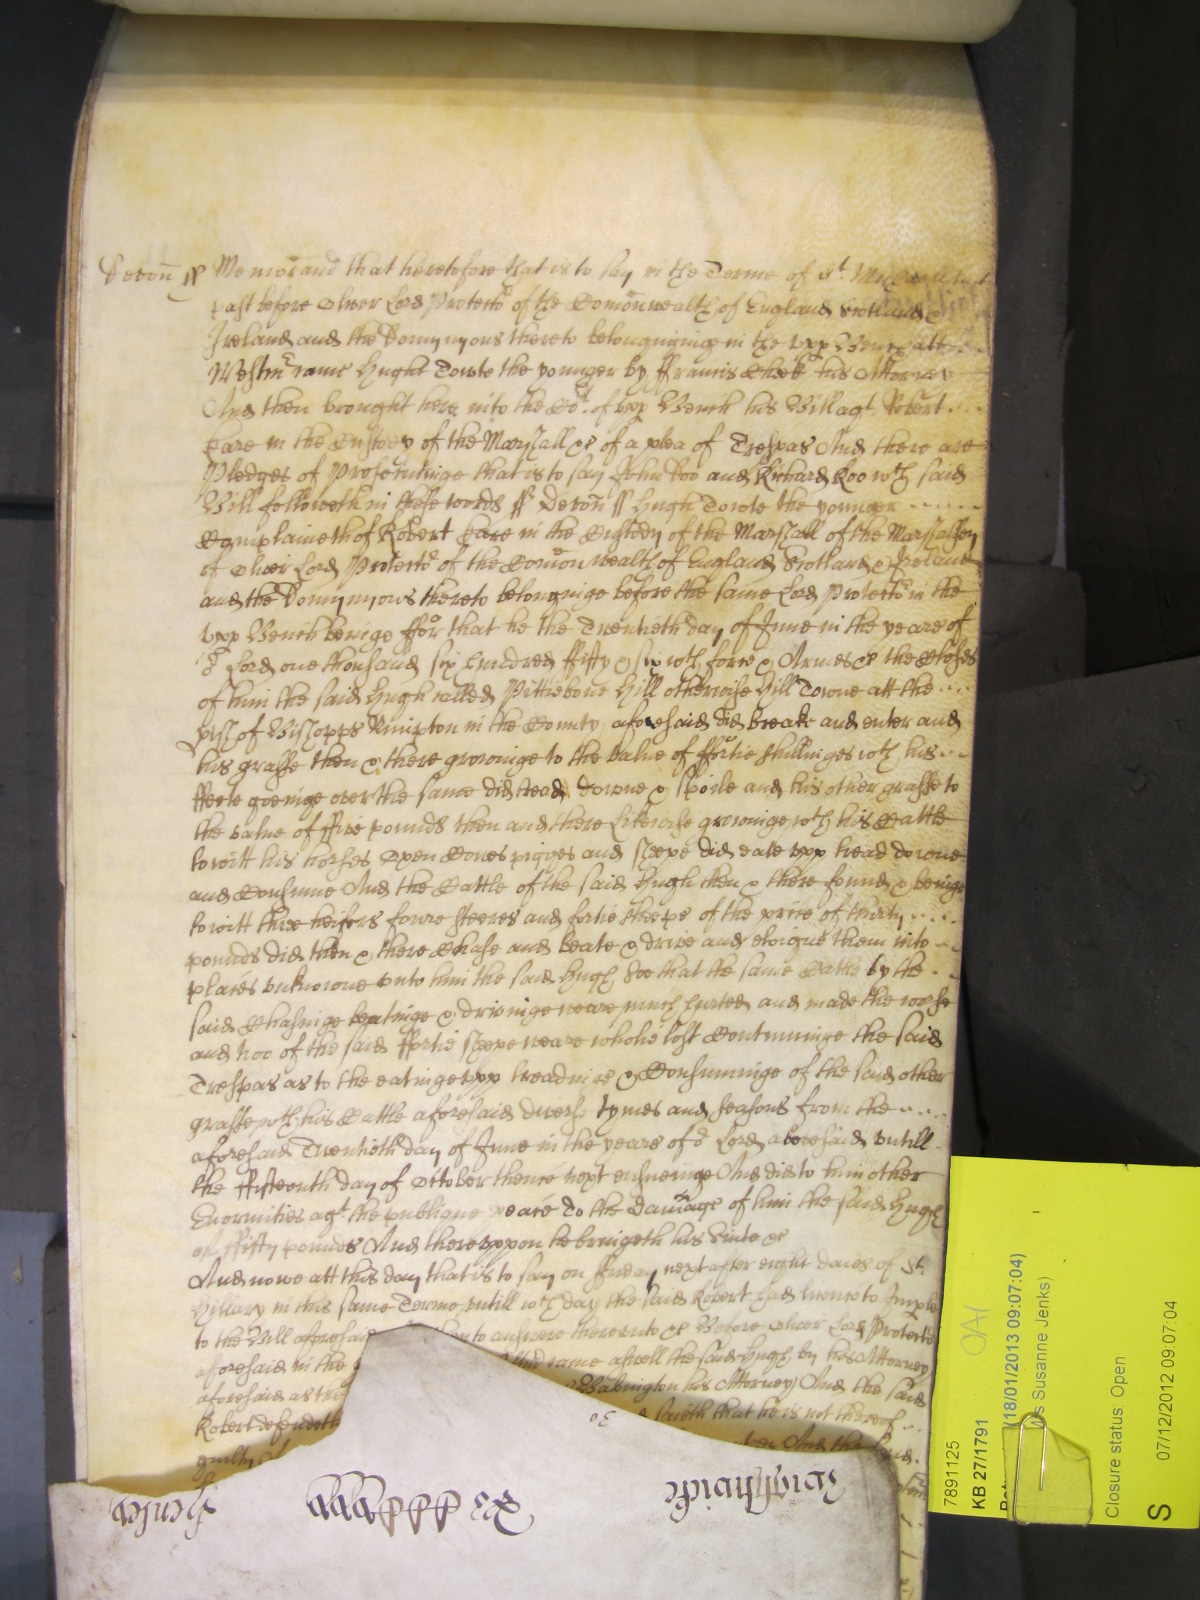 Devoñ ss Memorand that heretofore that is to say in the Terme of St. Michaell last
past before Oliver Lord Protector of the Comonwealth of England Scotland &
Ireland and the Dominyons thereto belonginge in the upp Bench att
Westmr came Hugh Towte the younger by ffrancis his Attorney
And then brought here into the Cort. of upp Bench his Bill agt. Robert
in the Custody of the Marshall &c of a plea of Trespas And there are
Pledges of Prosecutinge that is to say John Doo and Richard Roo wch said
Bill followeth in these words ss Devoñ ss Hugh Towte the younger
Complaineth of Robert in the Custody of the Marshall of the Marshalsey
of Oliver Lord Protector of the Comonwealth of England Scotland & Ireland
and the Dominyons thereto belonginge before the same Lord Protector in the
upp Bench beinge ffor that he the Twentieth day of June in the yeare of
or Lord one thousand six hundred ffifty & six wth force & Armes &c the Closes
of him the said Hugh called Hill otherwise Hill Towne att the
pish of Bishopps Nimpton in the County aforesaid did breake and enter and
his grasse then & there growinge to the value of ffortie shillinges wth his
ffeete goeinge over the same did tread downe & spoile and his other grasse to
the value of ffive pounds then and there likewise growinge wth his Cattle
to witt his horses Oxen Cowes pigges and sheepe did eate upp tread downe
and Consume And the Cattle of the said Hugh then & there found & beinge
to witt three heifers fowre steeres and fortie sheepe of the price of thirty
pounds did then & there Chase and beate & drive and eloigne them into
places unknowne unto him the said Hugh Soe that the same Cattle by the
said Chasinge beatinge & drivinge weare much hurted and made the worse
and two of the said ffortie sheepe weare wholie lost Contynuinge the said
Trespas as to the eatinge upp treadinge & Consuminge of the said other
grasse wth his Cattle aforesaid divers tymes and seasons from the
aforesaid Twentieth day of June in the yeare of or Lord abovesaid untill
the ffifteenth day of October thence next ensueinge And did to him other
Enormities agt. the publique peace To the damage of him the said Hugh
of ffifty pounds And thereuppon he bringeth his Suite &c
And nowe att this day that is to say on ffriday next after eight daies of St.
Hillary in this same Terme untill wch day the said Robert had licence to Imple
to the Bill aforesaid to answere thereunto &c Before Oliver Lord Protector
aforesaid in the came aswell the said Hugh by his Attorney
aforesaid as the Babington his Attorney And the said
Robert defendeth saieth that he is not thereof
guilty And the said
7891125
KB 27/1791
(18/01/2013 09:07:04)
s Susanne Jenks)
Closure status: Open
S 07/12/2012 09:07:04